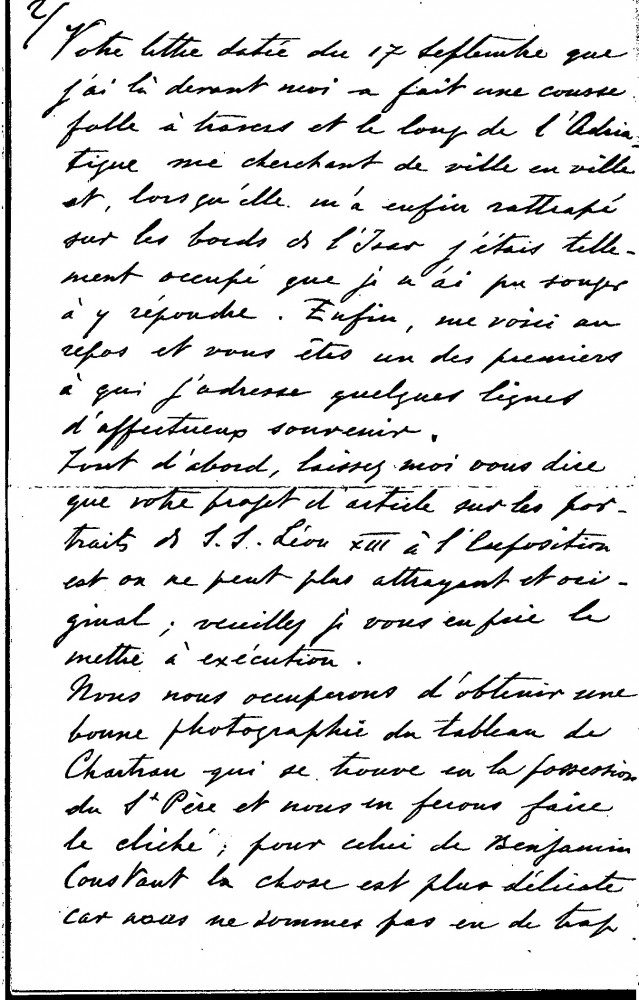 2/
Votre lettre datée du 17 Septembre que
j'ai là devant moi a fait une course
folle à travers et le long de l'Adria-
tique me cherchant de ville en ville
et, lorsqu'elle m'a enfin rattrapé
sur les bords de l'Isar j'étais telle-
ment occupé que je n'ai pu songer
à y répondre. Enfin, me voici au
repos et vous êtes un des premiers
à qui j'adresse quelques lignes
d'affectueux souvenir.
Tout d'abord, laissez moi vous dire
que votre projet d'article sur les por-
traits de S.S. Léon XIII à l'Exposition
est on ne peut plus attrayant et ori-
ginal ; veuillez je vous en prie le
mettre à exécution.
Nous nous occuperons d'obtenir une
bonne photographie du tableau de
Chartran qui se trouve en la possession
du St Père et nous en ferons faire
le cliché ; pour celui de Benjamin
Constant la chose est plus délicate
car nous ne sommes pas en de trop